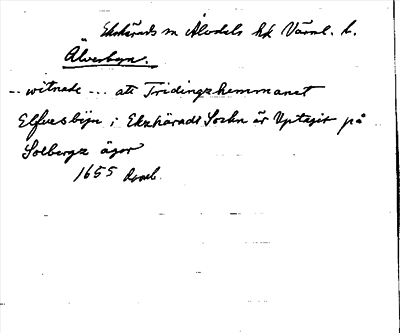 Ekshärads sn Älvdals hd Värml. l.
Älverbyn.
-- witnade --- att Tridingzhemmanet
Elfuesbÿn i Ekzhäradz Sochn är Vptagit på
Solbergz ägor
1655